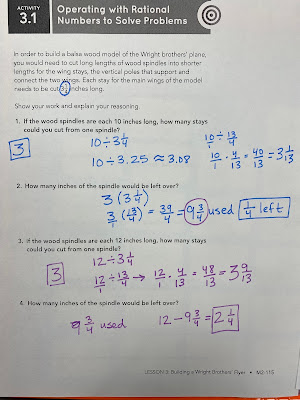 ACTIVITY
3.1
Operating with Rational
Numbers to Solve Problems
In order to build a balsa wood model of the Wright brothers' plane,
you would need to cut long lengths of wood spindles into shorter
lengths for the wing stays, the vertical poles that support and
connect the two wings. Each stay for the main wings of the model
needs to be cut 3 1/4 inches long.
Show your work and explain your reasoning.
1. If the wood spindles are each 10 inches long, how many stays
could you cut from one spindle?
3
10 ÷ 3 1/4
10 ÷ 3.25 ≈ 3.08
10/1 ÷ 13/4
10/1 · 4/13 = 40/13 = 3 1/13
2. How many inches of the spindle would be left over?
3 (3 1/4)
3/1 (13/4) = 39/4 = 9 3/4 used 1/4 left
3. If the wood spindles are each 12 inches long, how many stays
could you cut from one spindle?
3
12 ÷ 3 1/4
12/1 ÷ 13/4 → 12/1 · 4/13 = 48/13 = 3 9/13
4. How many inches of the spindle would be left over?
9 3/4 used
12 - 9 3/4 = 2 1/4
LESSON 3: Building a Wright Brothers' Flyer • M2-115